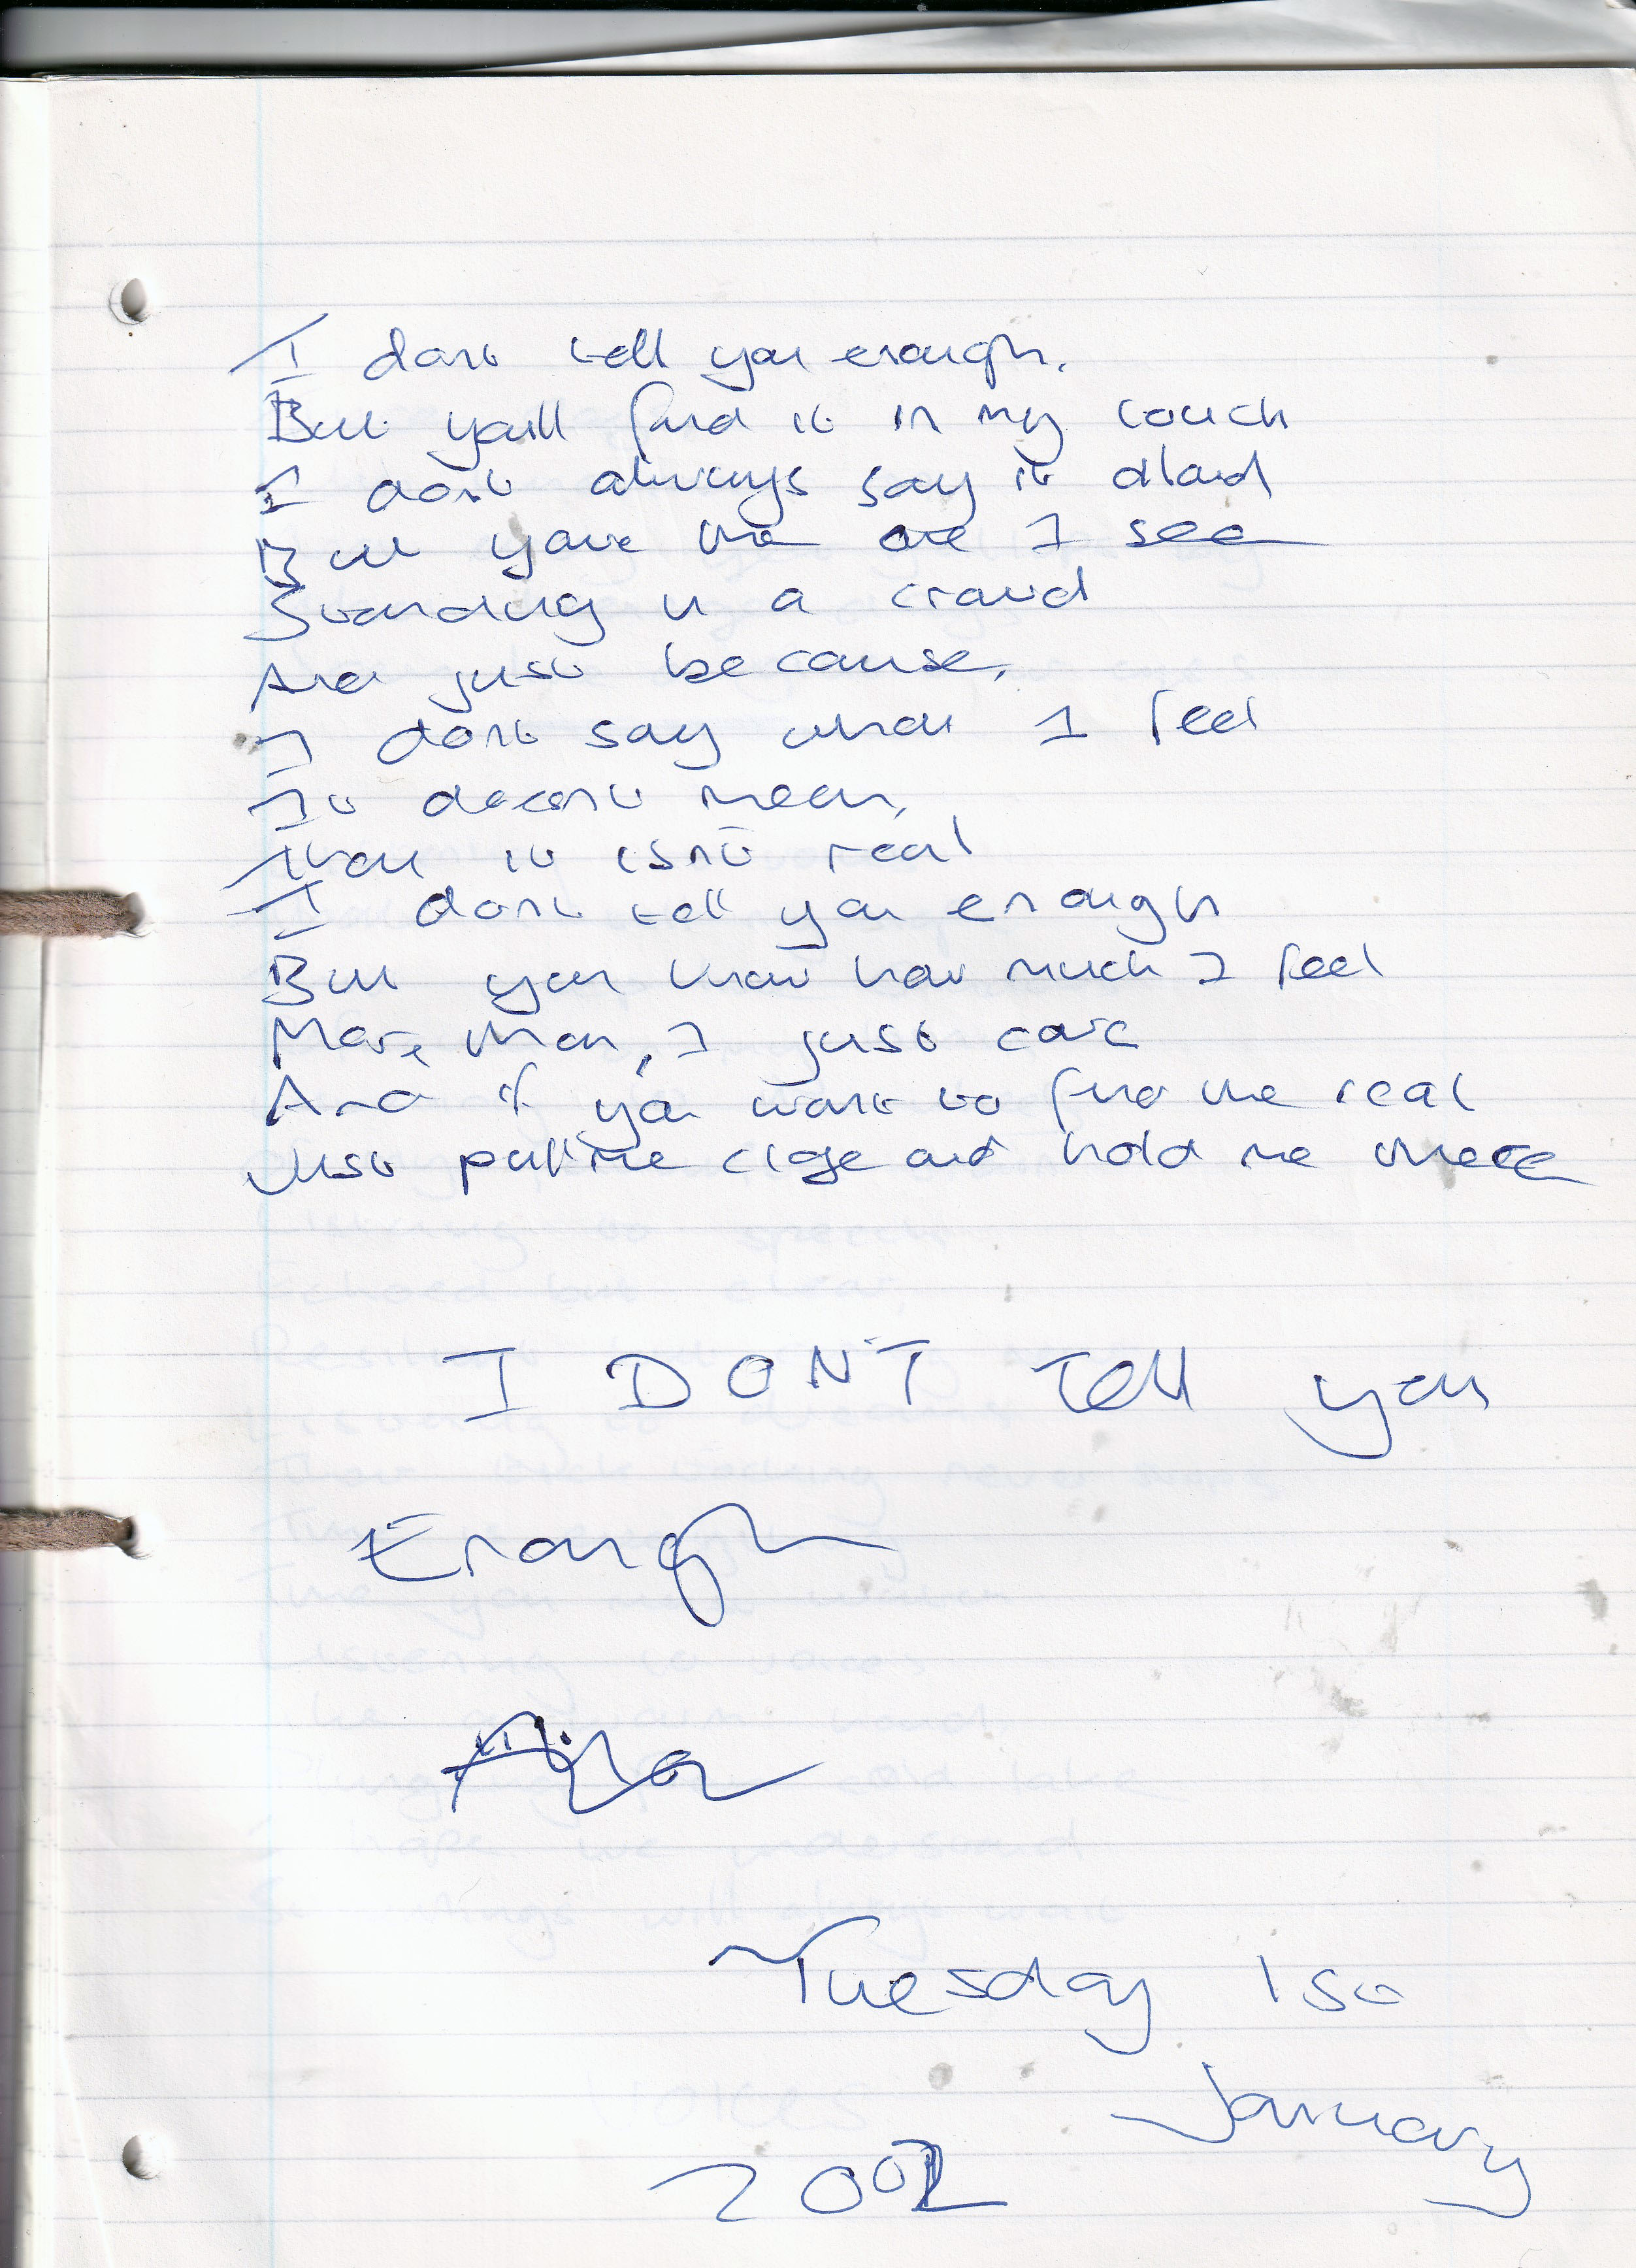 I dont tell you enough.
But youll find it in my touch
I dont always say it aloud
But youre the one I see
Standing in a crowd
And just because,
I dont say what I feel
It doesnt mean,
That it isnt real
I dont tell you enough
But you know how much I feel
More than, I just care
And if you want to find the real
Just pull me close and hold me there
I DON'T Tell you
Enough
Tuesday 1st
January
2002